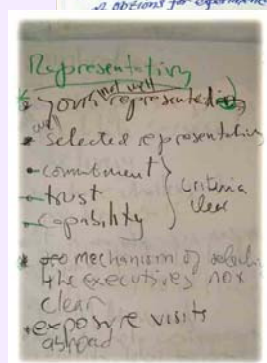 options for
Representation
not well
• represented
well
• selected representative
- commitment
- trust
- capability
criteria
clear
• mechanism of selecting
the executives not
clear
• exposure visits
abroad